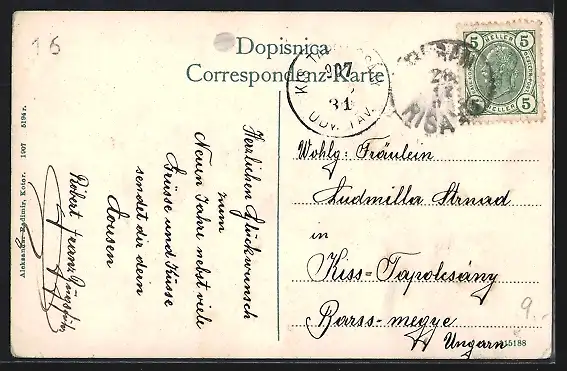 16
Dopisnica
Correspondenz-Karte
5 HELLER 5
5 HELLER 5
907
31
UDV. TAV.
28.
12
RISANO
Herzlichen Glückwunsch
zum
Neuen Jahre nebst viele
Grüsse und Küsse
sendet dir dein
Cousen
Robert
Aleksandar Radimir, Kotor. 1907 5194 r
Wohlg: Fräulein
Ludmilla Strnad
in
Kiss=Tapolcsány
Barss=megye
Ungarn
15188
9.-